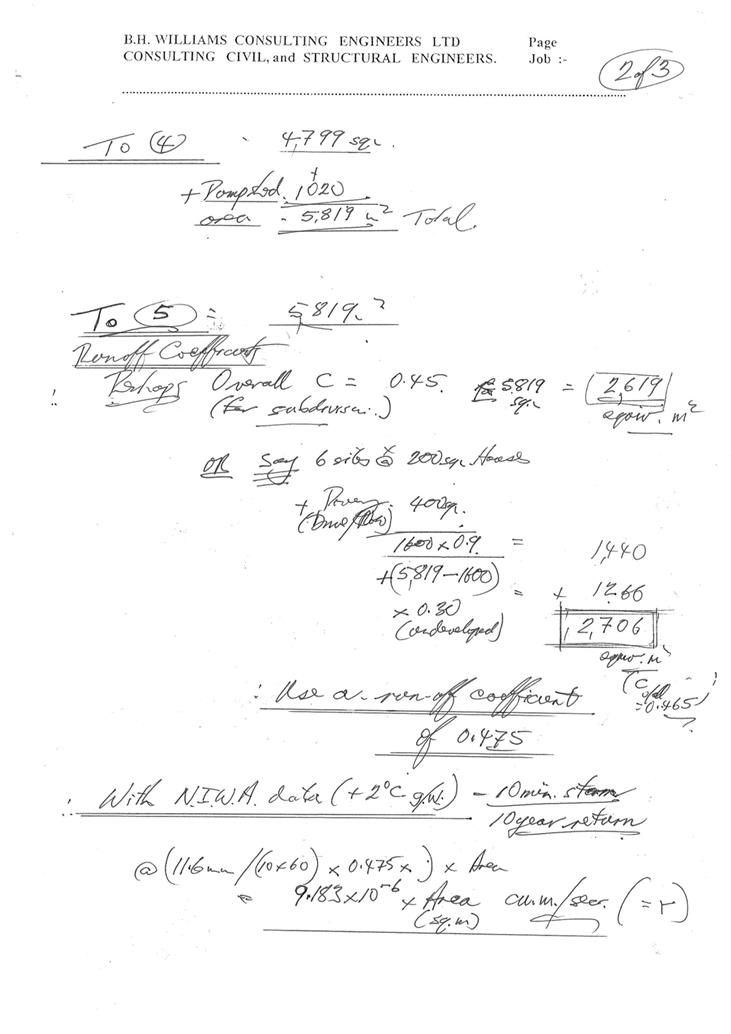 B.H. WILLIAMS CONSULTING ENGINEERS LTD Page
CONSULTING CIVIL, and STRUCTURAL ENGINEERS. Job :-
2 of 3
To (4) - 4,799 sq.
+
+ 1020
area = 5,819 m² Total.
To (5) = 5,819 ²
Runoff Coefficient
: Perhaps Overall C = 0.45. for 5,819 sq. = 2,619
(for subdivision.) equiv. m²
OR Say 6 sites @ 200sq. House
+ 400sq.
(Drive/)
1600 x 0.9 = 1,440
+(5,819 - 1600)
x 0.30 = + 1266
(undeveloped) 2,706
equiv. m²
(C = 0.465)
: Use a run-off coefficient
of 0.475
: With N.I.W.A. data (+2°C g/w.) - 10 min. storm
10 year return
@ (11.6mm/(10x60) x 0.475 x ) x Area
= 9.183x10⁻⁶ x Area cu.m./sec. (= r)
(sq.m)